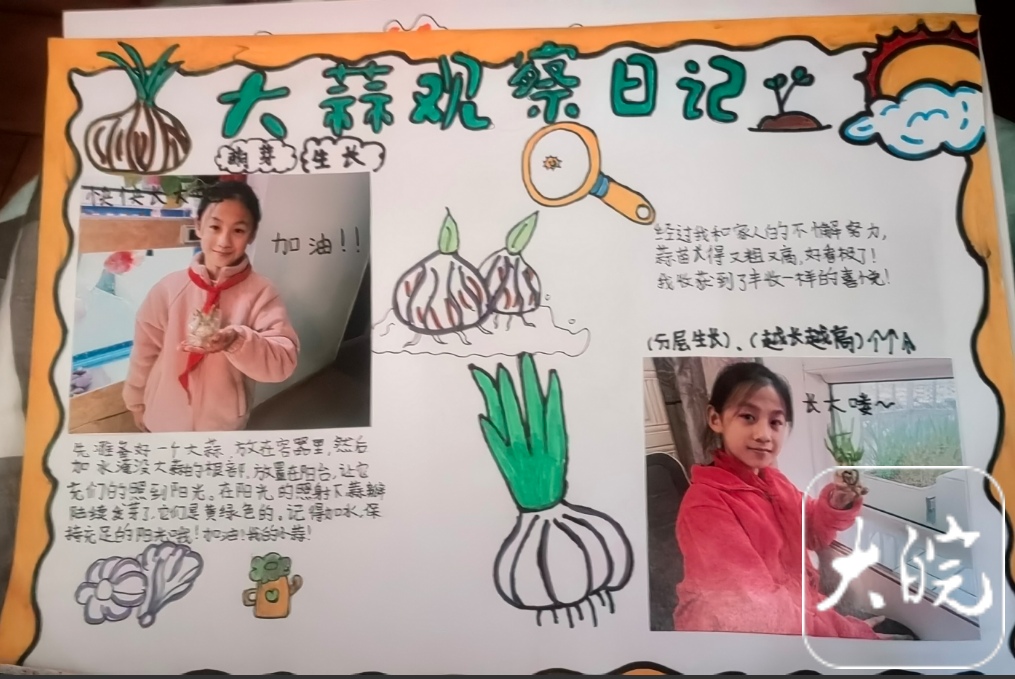 大蒜观察日记
萌芽 生长
快快长大
加油!!
经过我和家人的不懈努力,
蒜苗长得又粗又高,好看极了!
我收获到了丰收一样的喜悦!
(分层生长)、(越长越高)个个
长大喽~
先准备好一个大蒜,放在容器里,然后
加水淹没大蒜的根部,放置在阳台,让它
充们的照到阳光。在阳光的照射下蒜瓣
陆续发芽了,它们是黄绿色的。记得加水,保
持充足的阳光哦!加油!我的小蒜!
大皖